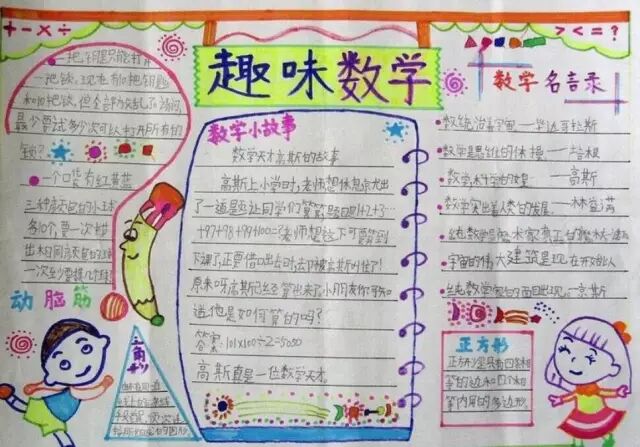 + - × ÷
趣味数学
> < = ?
一把钥匙只能打开
一把锁,现在有10把钥匙
和10把锁,但全部放乱了
最少要试多少次可以打开所有的
锁?
一个口袋有红黄蓝
三种颜色的小球
各10个,要一次摸
出相同颜色的小球
一次至少要摸几个球
动脑筋
三角形
数学小故事
数学天才高斯的故事
高斯上小学时,老师想休息
了一道题让同学们算算题目是1+2+3…
+97+98+99+100=?老师想这下可要算到
下课了正要借口出去时,却被高斯叫住了!
原来呀高斯已经算出来了小朋友你可知
道他是如何算的吗?
答案:101×100÷2=5050
高斯真是一位数学天才
数学名言录
数统治着宇宙——毕达哥拉斯
数学是思维的体操——培根
——高斯
人类的发展,
纯数学
宇宙的伟大建筑
纯数学
正方形
正方形是具有四条相
等的边和四个相
等内角的多边形。